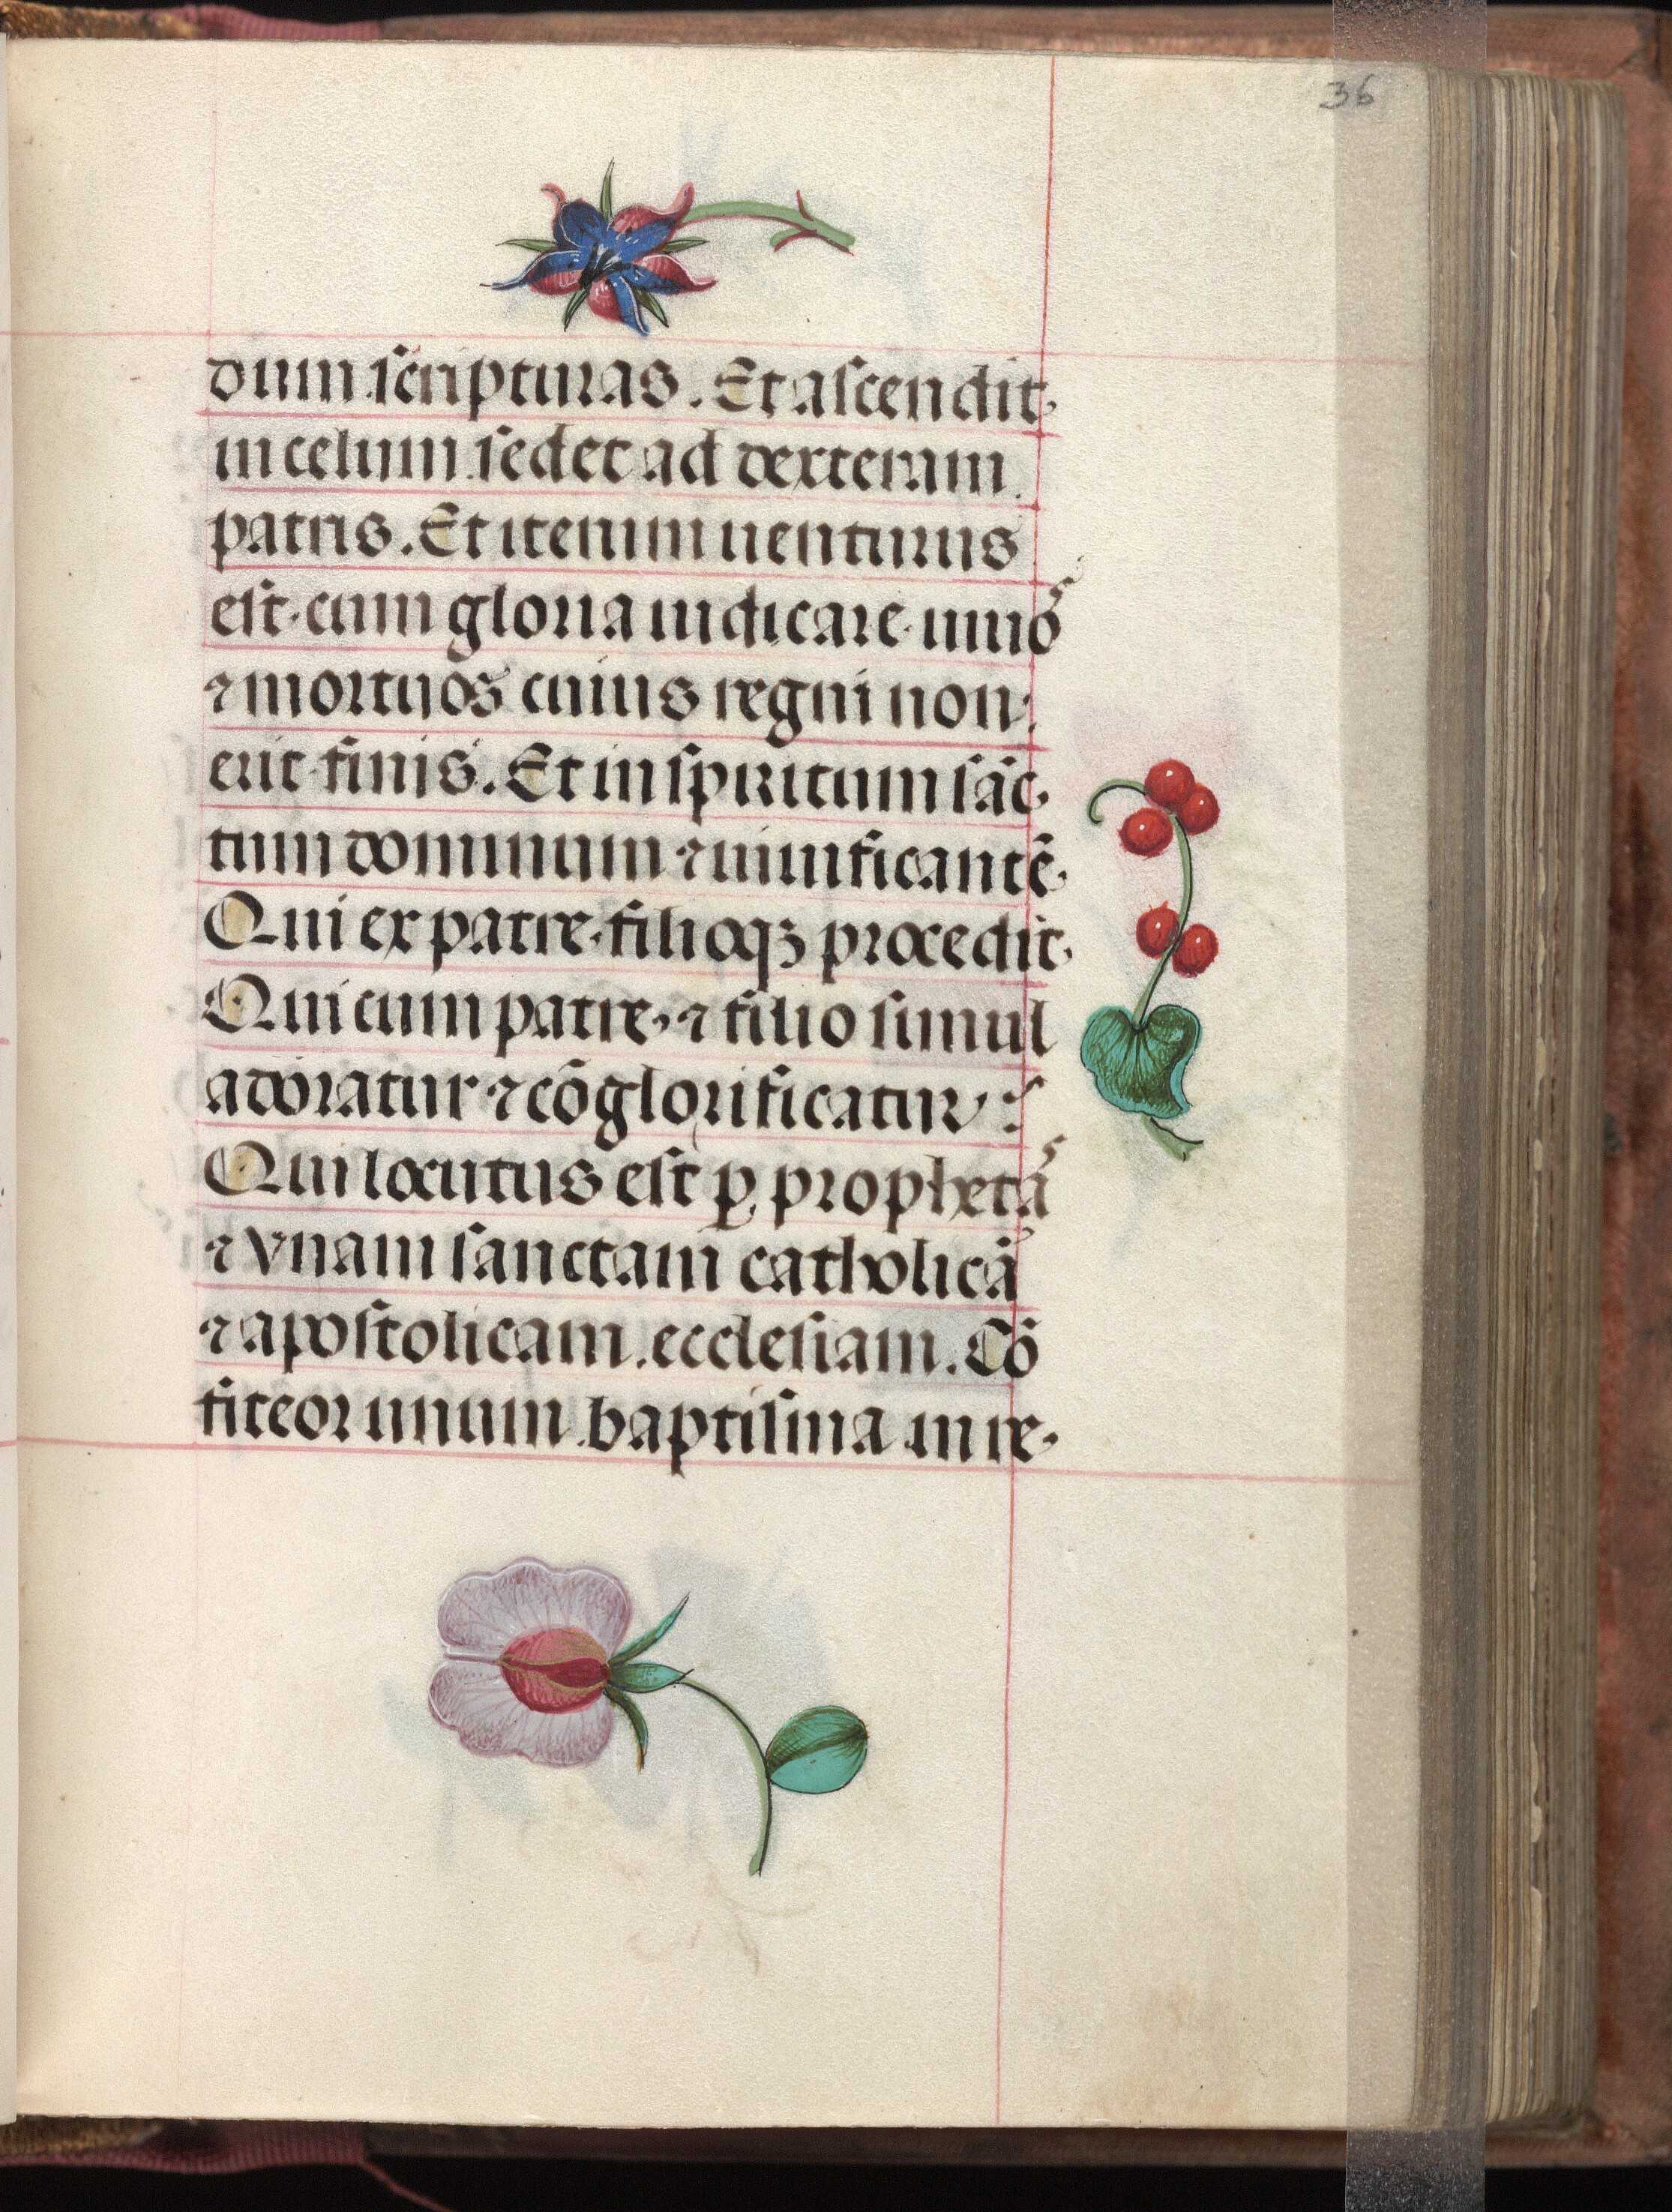 36
dum scripturas. Et ascendit
in celum sedet ad dexteram
patris. Et iterum uenturus
est cum gloria iudicare uiuoˢ
⁊ mortuos cuius regni non
erit finis. Et in spiritum sāc
tum dominum ⁊ uiuificantē
Qui ex patre filioqꝫ procedit
Qui cum patre, ⁊ filio simul
adoratur ⁊ cōglorificatur :
Qui locutus est ꝑ prophetaˢ
⁊ vnam sanctam catholicā
⁊ apostolicam ecclesiam. Cō
fiteor unum baptisma in re